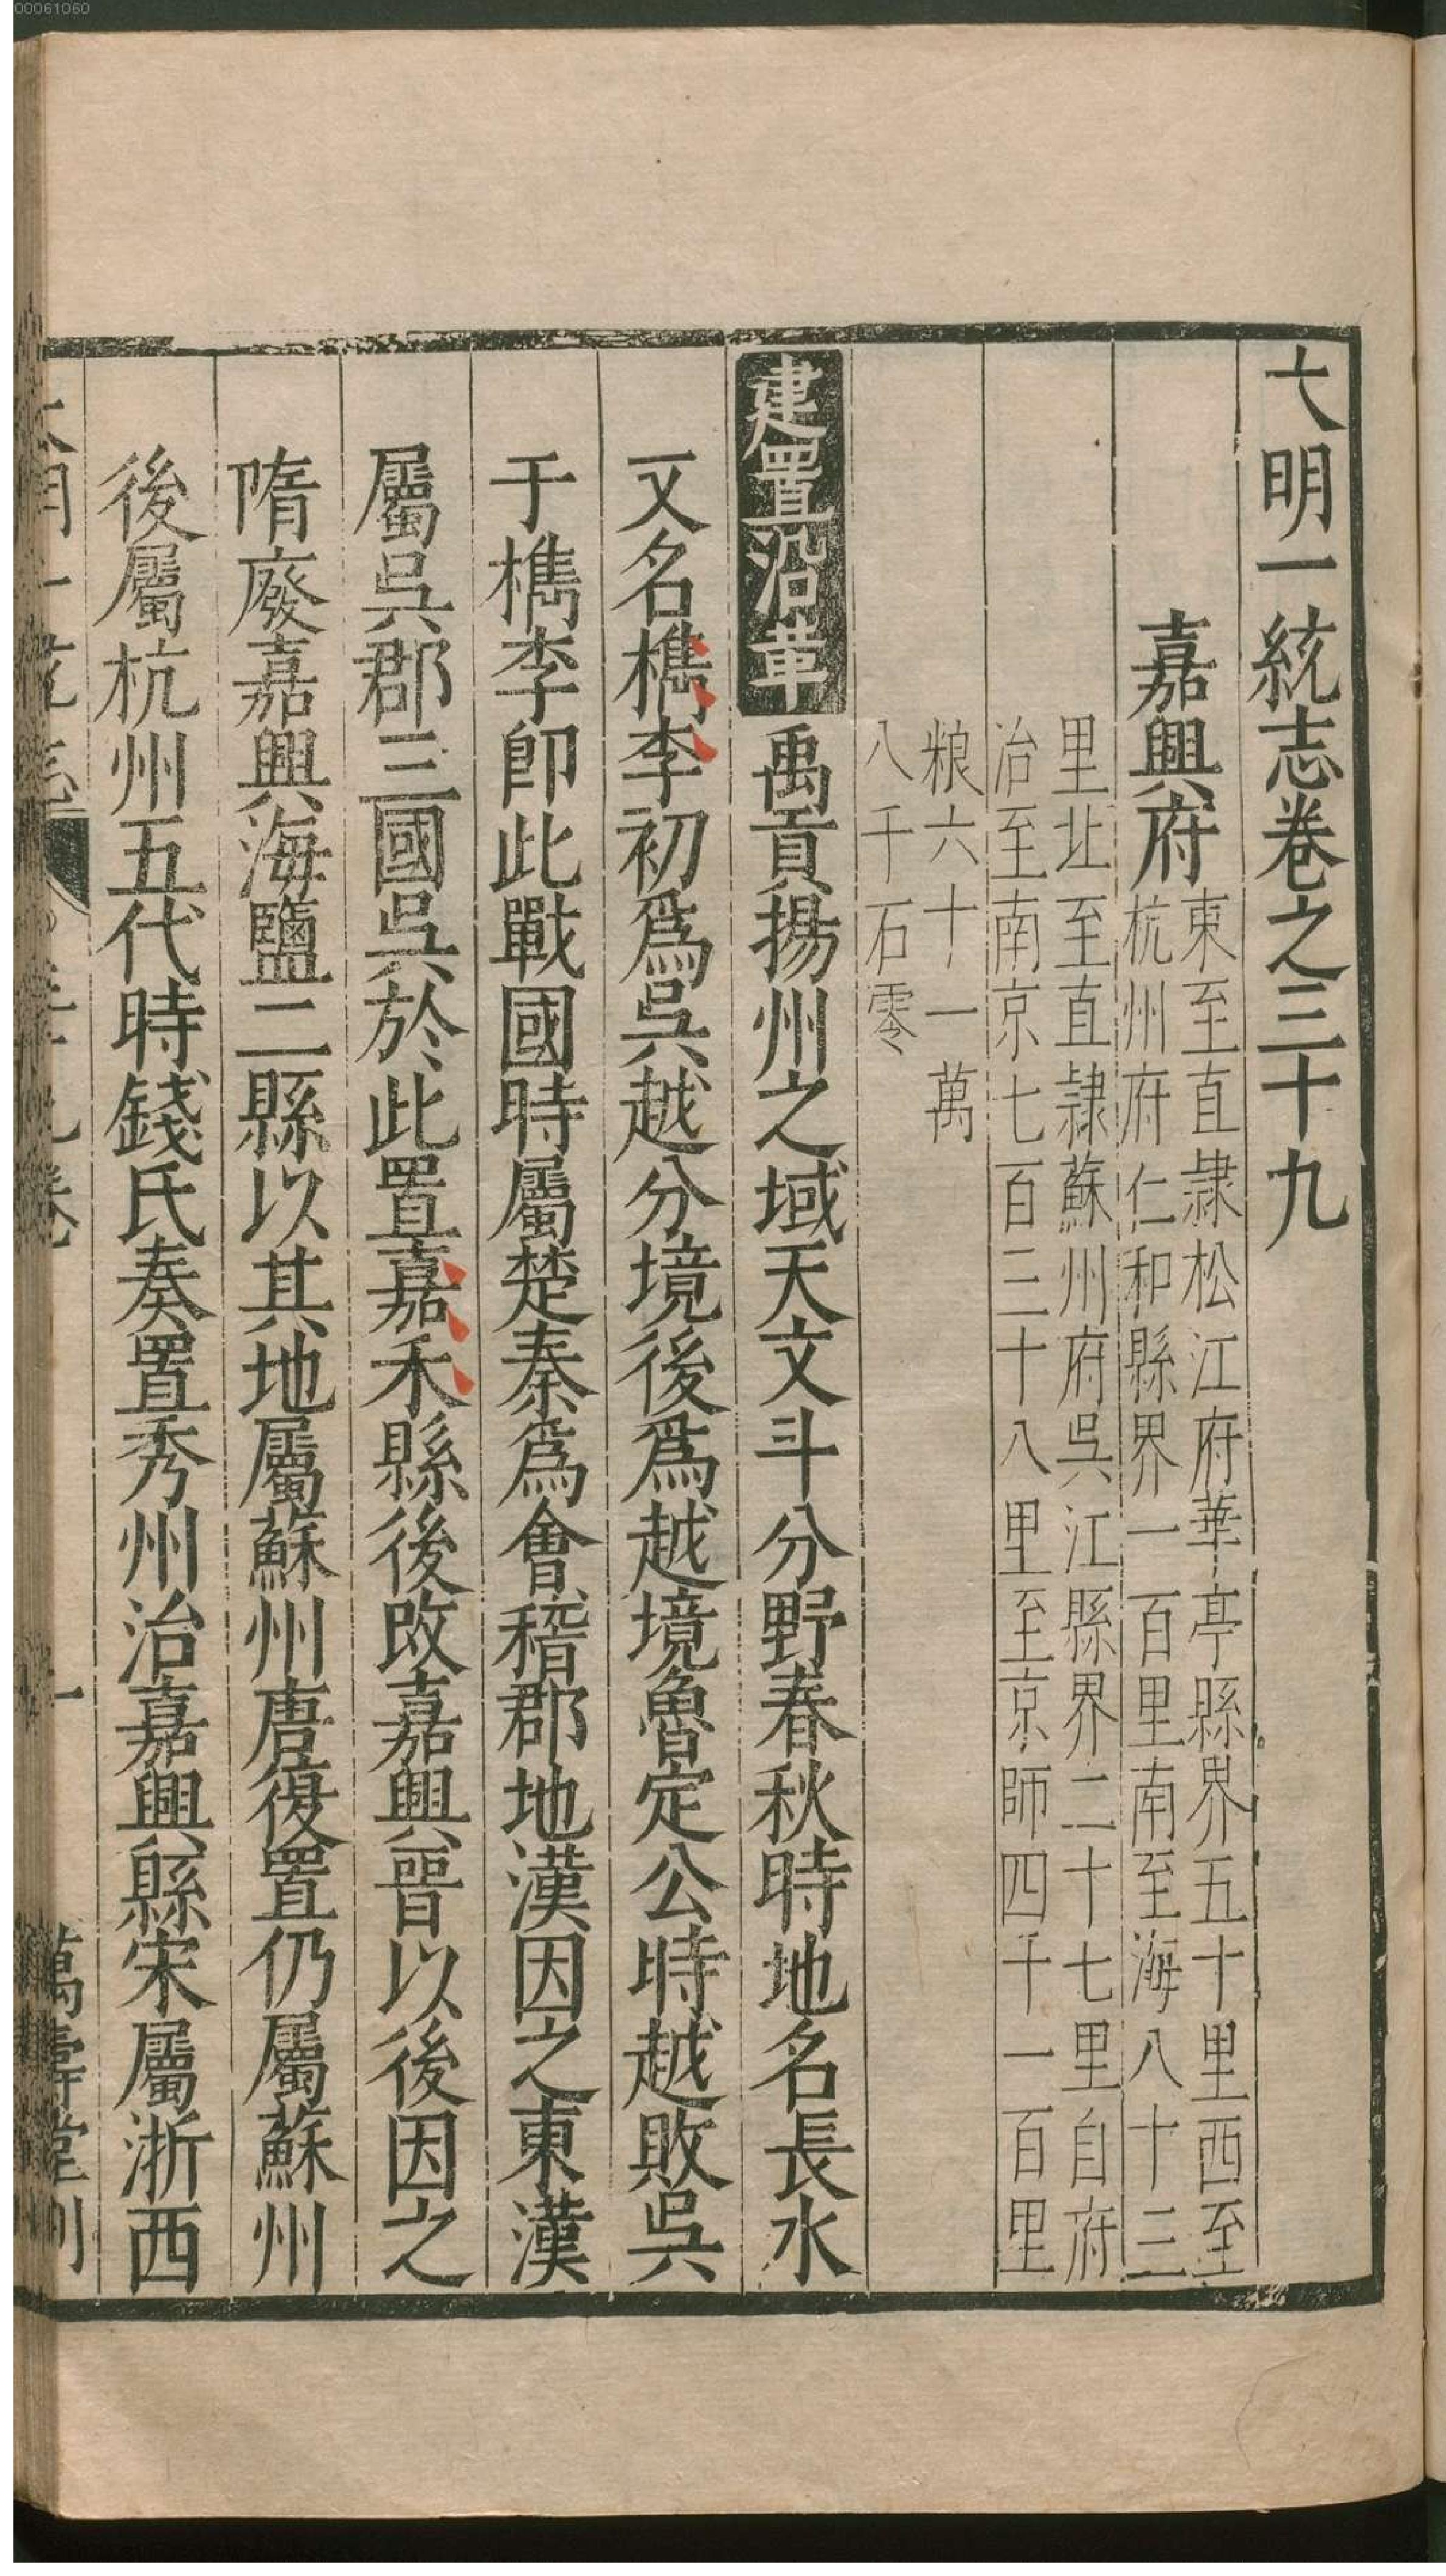 大明一統志卷之三十九
嘉興府
東至直隷松江府華亭縣界五十里西至
杭州府仁和縣界一百里南至海八十三
里北至直隷蘇州府吳江縣界二十七里自府
治至南京七百三十八里至京師四千一百里
粮六十一萬
八千石零
建置沿革禹貢揚州之域天文斗分野春秋時地名長水
又名檇李初爲吳越分境後爲越境魯定公時越敗吳
于檇李卽此戰國時屬楚秦爲會稽郡地漢因之東漢
屬吳郡三國吳於此置嘉禾縣後改嘉興晉以後因之
隋廢嘉興海鹽二縣以其地屬蘇州唐復置仍屬蘇州
後屬杭州五代時錢氏奏置秀州治嘉興縣宋屬浙西
萬壽堂刊
00061060